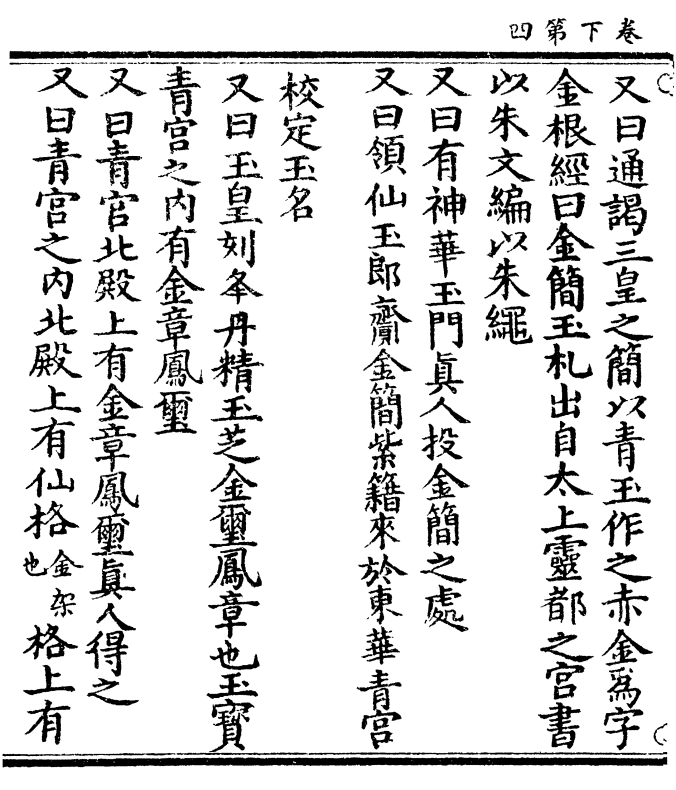 卷下第四
又曰通謁三皇之簡以青玉作之赤金爲字
金根經曰金簡玉札出自太上靈都之宮書
以朱文編以朱繩
又曰有神華玉門眞人投金簡之處
又曰領仙玉郎齎金簡紫籍來於東華青宮
校定玉名
又曰玉皇刻夆丹精玉芝金璽鳳章也玉寶
青宮之內有金章鳳璽
又曰青宮北殿上有金章鳳璽眞人得之
又曰青宮之內北殿上有仙格金架也格上有